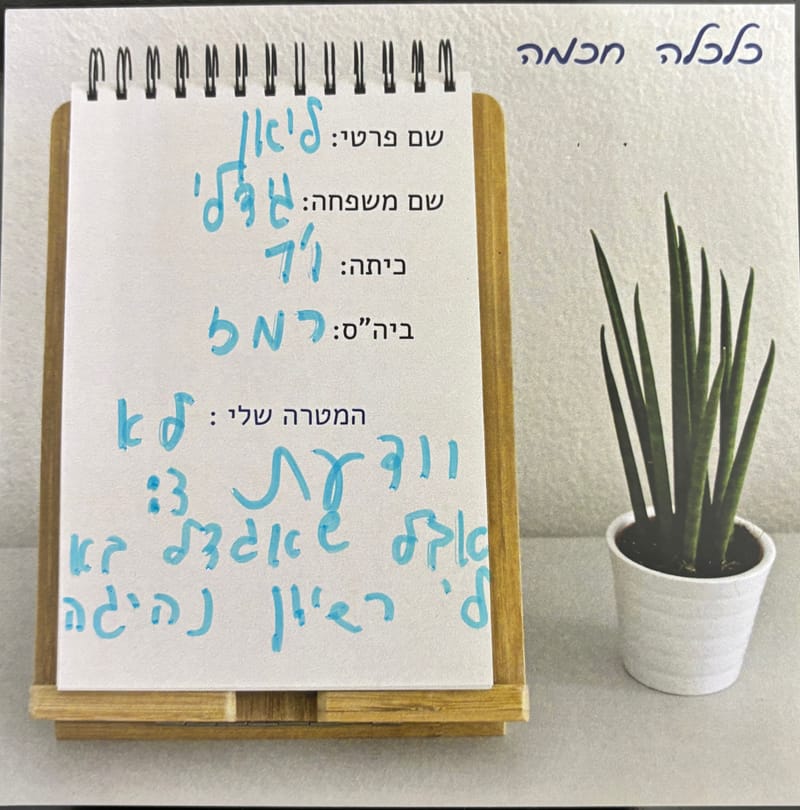 כלכלה חכמה
שם פרטי: ליאון
שם משפחה: גדלי
כיתה: ו'ד
ביה"ס: רמז
המטרה שלי : לא
וודעת :3
אבל שאגדל בא
לי רשיון נהיגה